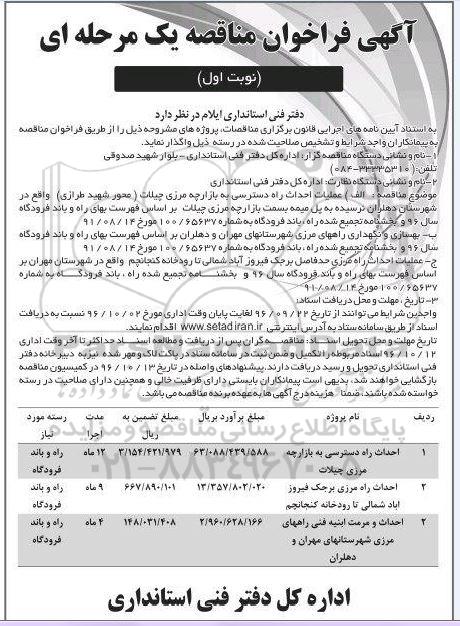 آگهی فراخوان مناقصه یک مرحله ای
(نوبت اول)
دفتر فنی استانداری ایلام در نظر دارد
به استناد آیین نامه های اجرایی قانون برگزاری مناقصات، پروژه های مشروحه ذیل را از طریق فراخوان مناقصه
به پیمانکاران واجد شرایط و تشخیص صلاحیت شده در رسته ذیل واگذار نماید.
۱- نام و نشانی دستگاه مناقصه گزار: اداره کل دفتر فنی استانداری - بلوار شهید صدوقی
تلفن: (۳۳۳۳۵۳۱۰-۰۸۴
۲- نام و نشانی دستگاه نظارت: اداره کل دفتر فنی استانداری
موضوع مناقصه: الف) عملیات احداث راه دسترسی به بازارچه مرزی چیلات (محور شهید طرازی) واقع در
شهرستان دهلران نرسیده به پل میمه بسمت بازارچه مرزی چیلات بر اساس فهرست بهای راه و باند فرودگاه
سال ۹۶ و بخشنامه تجمیع شده راه، باند فرودگاه به شماره ۱۰۰/۶۵۶۳۷ مورخ ۹۱/۰۸/۱۴
ب- بهسازی و نگهداری راههای مرزی شهرستانهای مهران و دهلران بر اساس فهرست بهای راه و باند فرودگاه
سال ۹۶ و بخشنامه تجمیع شده راه، باند فرودگاه به شماره ۱۰۰/۶۵۶۳۷ مورخ ۹۱/۰۸/۱۴
ج- عملیات احداث راه مرزی حدفاصل برجک فیروز آباد شمالی تا رودخانه کنجانچم واقع در شهرستان مهران بر
اساس فهرست بهای راه و باند فرودگاه سال ۹۶ و بخشنامه تجمیع شده راه، باند فرودگاه به شماره
۱۰۰/۶۵۶۳۷ مورخ ۹۱/۰۸/۱۴
۳- تاریخ، مهلت و محل دریافت اسناد:
واجدین شرایط می توانند از تاریخ ۹۶/۰۹/۲۲ لغایت پایان وقت اداری مورخ ۹۶/۱۰/۰۲ نسبت به دریافت
اسناد از طریق سامانه ستاد به آدرس اینترنتی www.setadiran.ir اقدام نمایند.
تاریخ مهلت و محل تحویل اسناد: مناقصه گران پس از دریافت و مطالعه اسناد حداکثر تا آخر وقت اداری
۹۶/۱۰/۱۲ اسناد مربوطه را تکمیل و ضمن ثبت در سامانه ستاد در پاکت لاک و مهر شده نیز به دبیرخانه دفتر
فنی استانداری تحویل و رسید دریافت دارند. پیشنهادهای واصله در تاریخ ۹۶/۱۰/۱۳ در کمیسیون مناقصه
بازگشایی خواهند شد، بدیهی است پیمانکاران بایستی دارای ظرفیت خالی و همچنین دارای صلاحیت در رسته
خواسته شده باشند. ضمنا هزینه درج آگهی ها به عهده برنده مناقصه می باشد.
ردیف نام پروژه مبلغ برآورد بریال مبلغ تضمین به ریال مدت اجرا رسته مورد نیاز
۱ احداث راه دسترسی به بازارچه مرزی چیلات ۶۳/۰۸۸/۴۳۹/۵۸۸ ۳/۱۵۴/۴۲۱/۹۷۹ ۱۲ ماه راه و باند فرودگاه
۲ احداث راه مرزی برجک فیروز اباد شمالی تا رودخانه کنجانچم ۱۳/۳۵۷/۸۰۳/۰۲۰ ۶۶۷/۸۹۰/۱۰۱ ۹ ماه راه و باند فرودگاه
۲ احداث و مرمت ابنیه فنی راههای مرزی شهرستانهای مهران و دهلران ۲/۹۶۰/۶۲۸/۱۶۶ ۱۴۸/۰۳۱/۴۰۸ ۴ ماه راه و باند فرودگاه
پایگاه اطلاع رسانی مناقصه و مزایده
۰۲۱-۸۸۳۴۹۶۷۰
اداره کل دفتر فنی استانداری